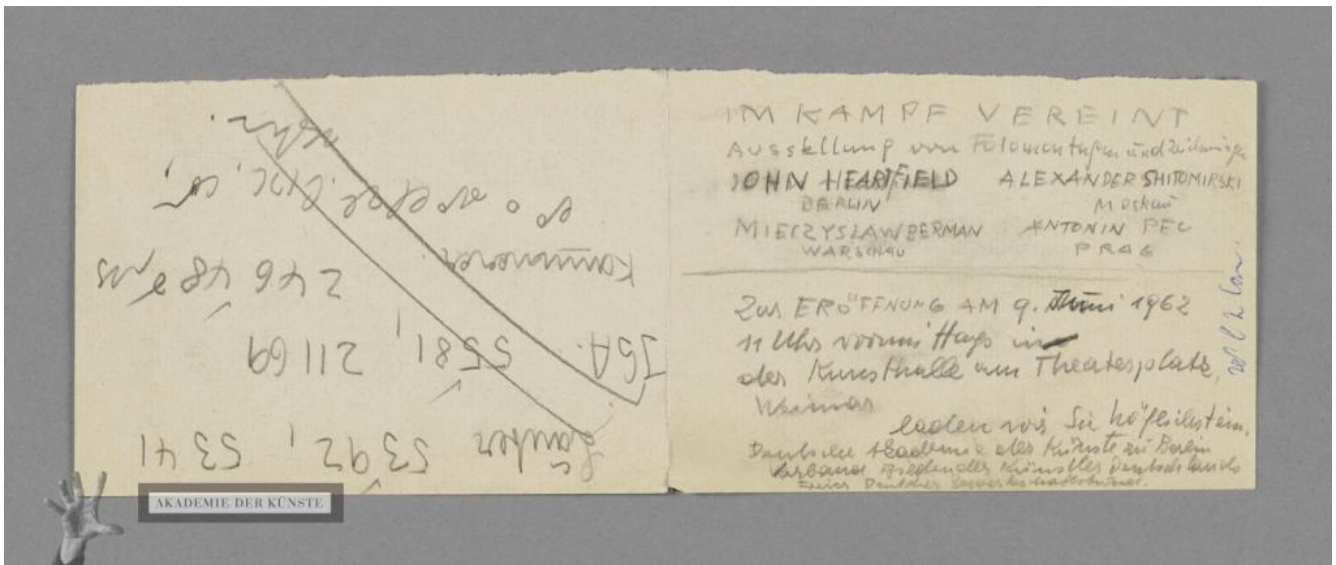 IM KAMPF VEREINT
Ausstellung von Fotomontagen und Zeichnungen
JOHN HEARTFIELD ALEXANDER SHITOMIRSKI
BERLIN Moskau
MIECZYSLAW BERMAN ANTONIN PELC
WARSCHAU PRAG
Zur ERÖFFNUNG AM 9. Juni 1962
11 Uhr vormittags in
der Kunsthalle am Theaterplatz,
Weimar
laden wir Sie höflichst ein.
Deutsche Akademie der Künste zu Berlin
Verband Bildender Künstler Deutschlands
Freier Deutscher Gewerkschaftsbund.
5392, 5341
JGA. 5581, 21169
Kammerer. 246 48
AKADEMIE DER KÜNSTE